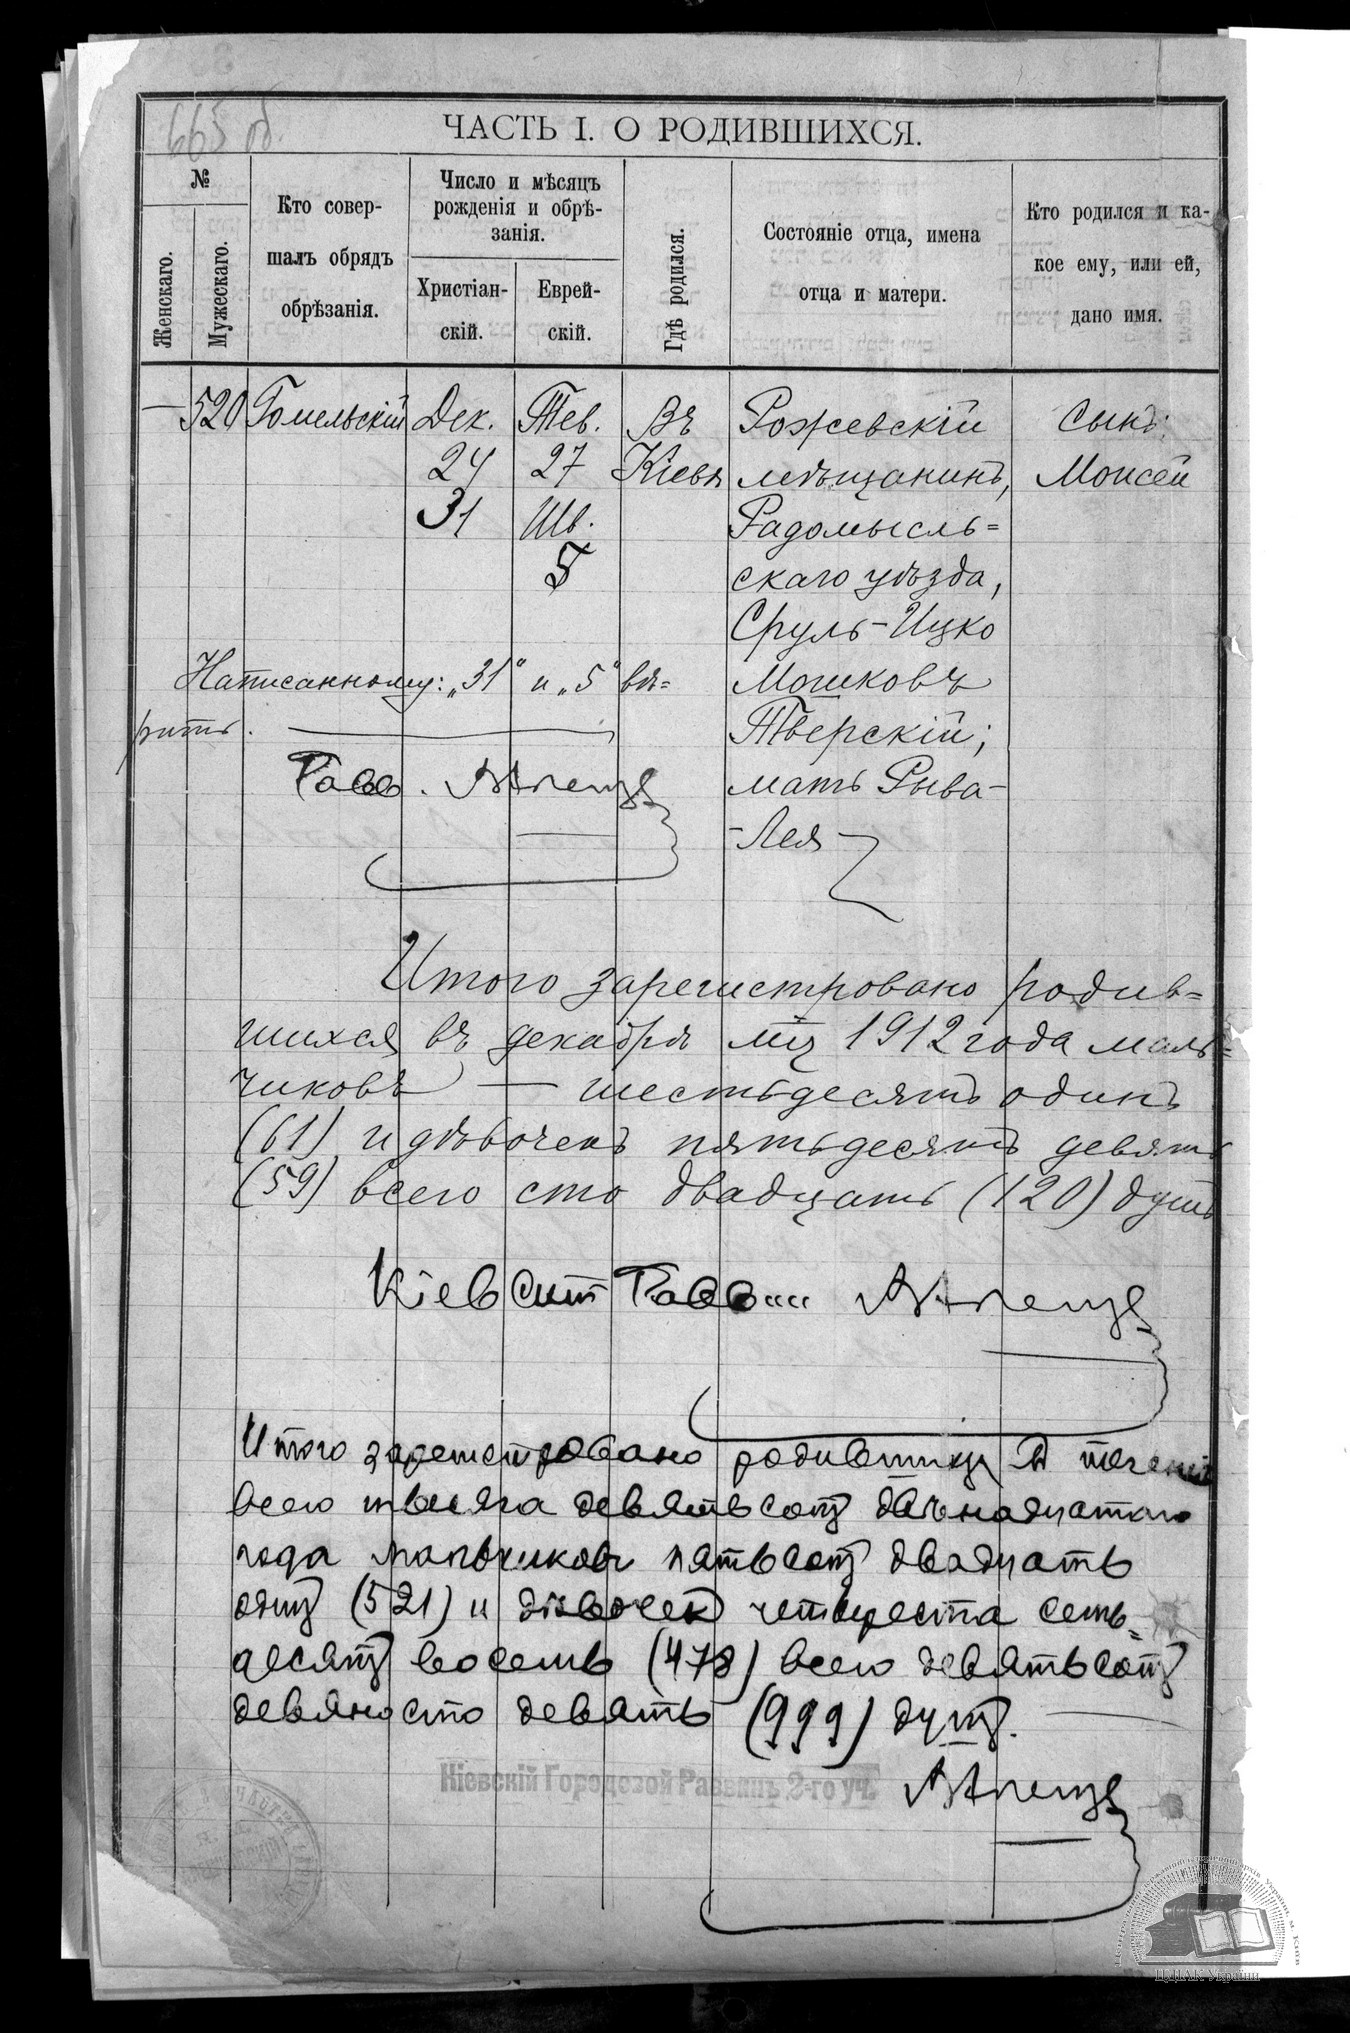 665 об.
ЧАСТЬ I. О РОДИВШИХСЯ.
№
Женскаго.
Мужескаго.
Кто совер-
шалъ обрядъ
обрѣзанія.
Число и мѣсяцъ
рожденія и обрѣ-
занія.
Христіан-
скій.
Еврей-
скій.
Гдѣ родился.
Состояніе отца, имена
отца и матери.
Кто родился и ка-
кое ему, или ей,
дано имя.
— 520 Гомельскій Дек. Тев. Въ Рожевскій Сынъ
24 27 Кіевѣ мѣщанинъ, Моисей
31 Шв. Радомысль=
5 скаго уѣзда,
Сруль-Ицко
Написанному: „31" и „5" вѣ= Мошковъ
рить. Тверскій;
Равв. мать Рыва-
-Лея
Итого зарегистровано родив=
шихся въ декабрѣ мцѣ 1912 года маль=
чиковъ — шестьдесятъ одинъ
(61) и дѣвочекъ пятьдесятъ девять
(59) всего сто двадцать (120) душъ
Кіевскій Раввинъ
Итого зарегистровано родившихся въ теченіе
всего тысяча девятьсотъ двѣнадцатаго
года мальчиковъ пятьсотъ двадцать
одинъ (521) и дѣвочекъ четыреста семь=
десятъ восемь (478) всего девятьсотъ
девяносто девять (999) душъ.
Кіевскій Городской Раввинъ 2-го уч.
ЦДІАК України